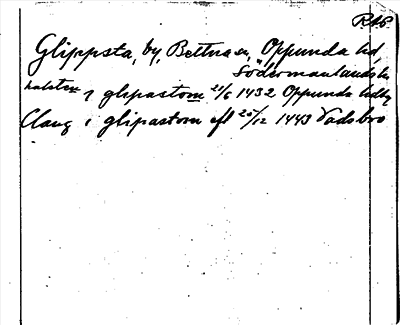 RAP
Glippsta, by, Bettna sn, Oppunda hd,
Södermanlands l.
halsten i glipastom 21/6 1432 Oppunda hdbr
Claug i glipastom afl 20/12 1443 Vadsbro